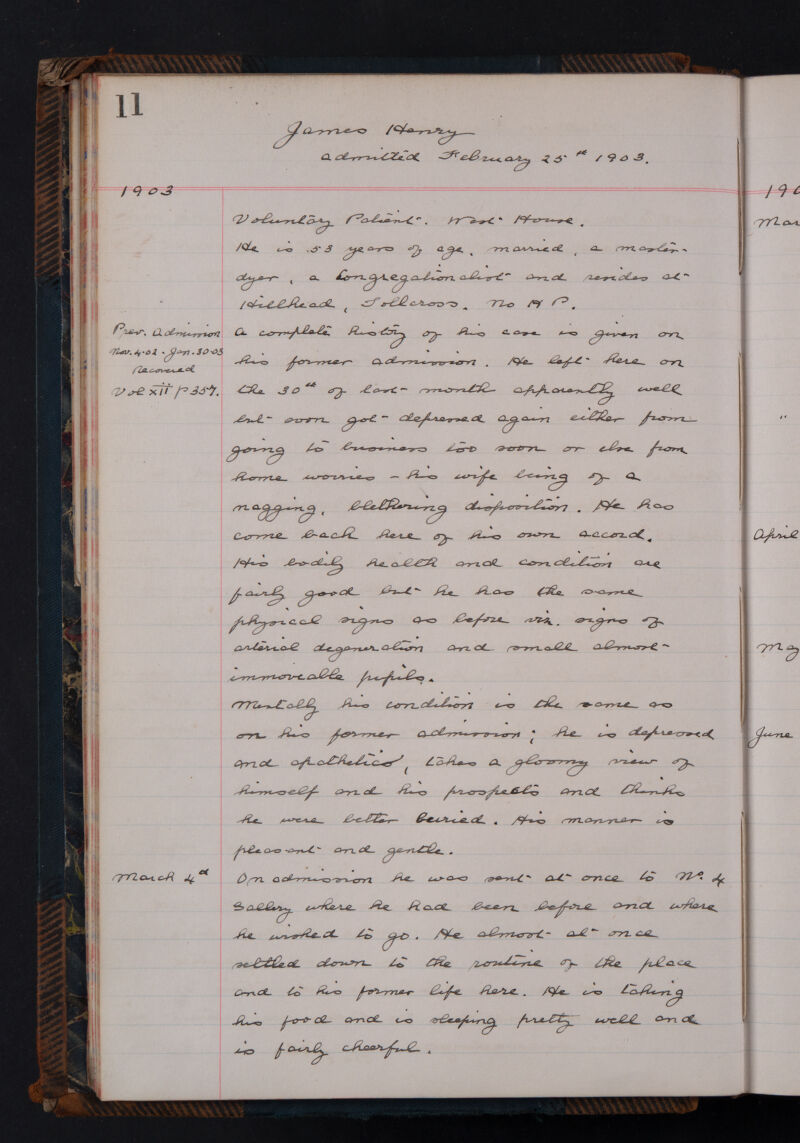 11
James Henry
admitted February 25th 1903.
1903
Voluntary Patient. West House.
He is 53 years of age, married, a master-
dyer, a Congregationalist and resides at
Hillhead, Tollcross. No H P.
Prev. Admission
Nov. 4.02 - Jan. 30.03
Recovered
Vol XII P 357.
A complete history of his case is given on
his former admission. He left here on
the 30th of last month apparently well
but soon got depressed again either from
going to business too soon or else from
home worries - his wife being of a
nagging, blethering disposition. He has
come back here of his own accord.
His bodily health and condition are
fairly good but he has the same
physical signs as before viz. signs of
arterial degeneration and small almost
immoveable pupils.
Mentally his condition is the same as
on his former admission; he is depressed
and apathetics, takes a gloomy view of
himself and his prospects and thinks
he were better buried. His manner is
pleasant and gentle.
March 4d
On admission he was sent at once to No. 4
Gallery where he had been before and where
he wished to go. He almost at once
settled down to the routine of the place
and to his former life here. He is taking
his food and is sleeping pretty well and
is fairly cheerful.
190
Mar
"
April
May
June